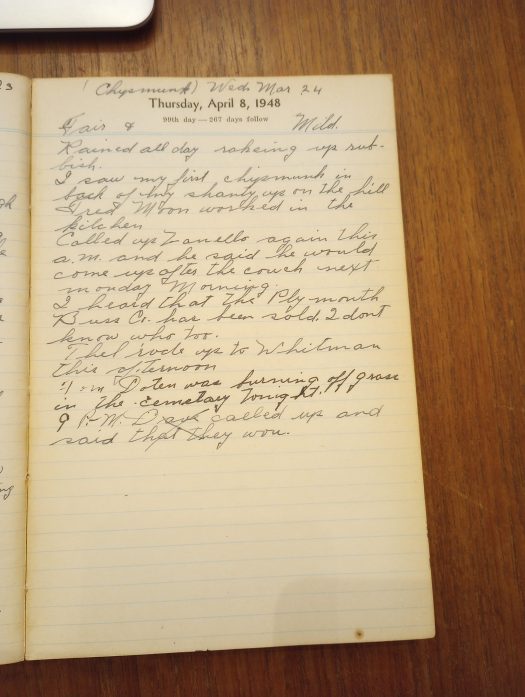 23
(Chipmunk) Wed. Mar 24
Thursday, April 8, 1948
99th day — 267 days follow
Fair & Mild.
Rained all day raksing up rub-
bish.
I saw my first chipmunk in
back of my shanty up on the hill
Fred Moon worked in the
kitchen
Called up Zanello again this
a.m. and he said he would
come up after the couch next
monday Morning.
I heard that the Plymouth
Buss Co. has been sold. I dont
know who too.
Thel rode up to Whitman
this afternoon
Doten was burning off grass
in the cemetary tonight.
9 P.M. Dave called up and
said that they won.